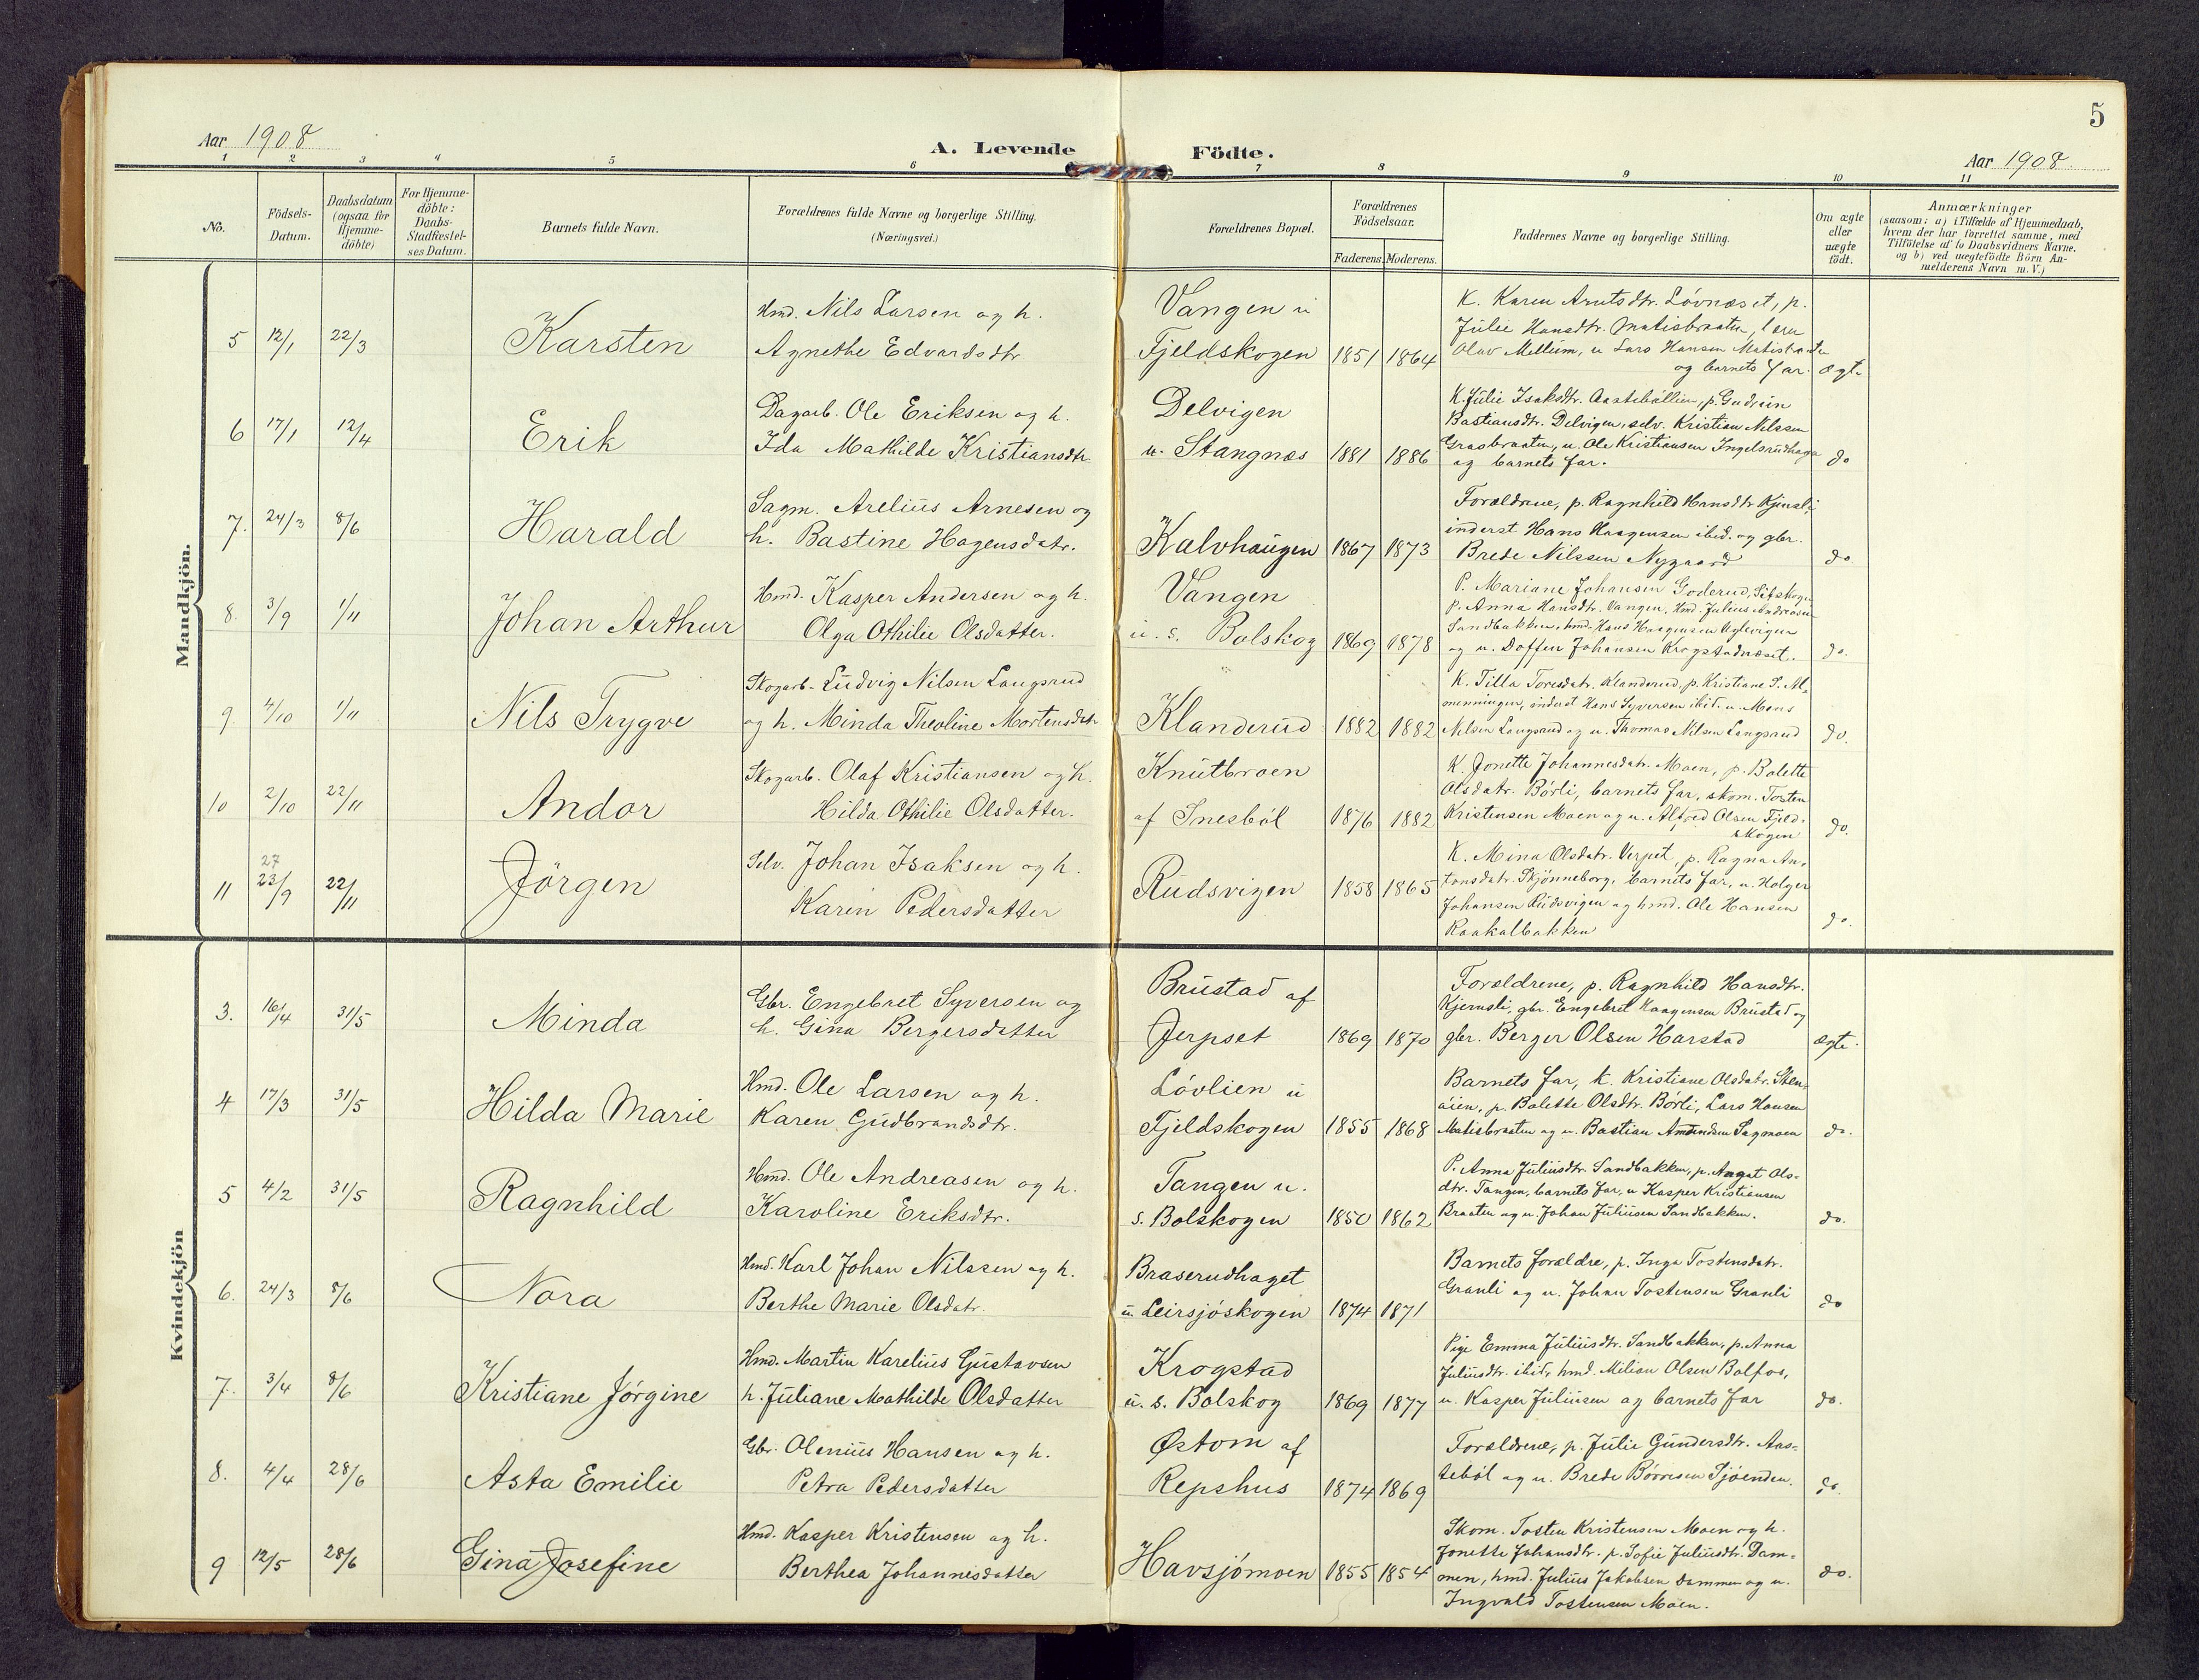 5
Aar 1908
A. Levende Födte.
Aar 1908
1 2 3 4 5 6 7 8 9 10 11
No.
Födsels-Datum.
Daabsdatum (ogsaa for Hjemme-döbte)
For Hjemme-döbte: Daabs-Stadfæstel-ses Datum.
Barnets fulde Navn.
Forældrenes fulde Navne og borgerlige Stilling. (Næringsvei.)
Forældrenes Bopæl.
Forældrenes Födselsaar.
Faderens. Moderens.
Faddernes Navne og borgerlige Stilling.
Om ægte eller uægte födt.
Anmærkninger (saasom: a) i Tilfælde af Hjemmedaab, hvem der har forrettet samme, med Tilföielse af to Daabsvidners Navne, og b) ved uægtefödte Börn An-melderens Navn m. V.)
Mandkjön.
5 12/1 22/3 Karsten
Hmd. Nils Larsen og h.
Agnethe Edvardsdtr
Vangen u
Fjeldskogen 1851 1864
K. Karen Arntsdtr. Lövnæset, p.
Julie Hansdtr. Matisbraaten,
Olav Mellum, u Lars Hansen Matisbraaten
og barnets far. ægt.
6 17/1 12/4 Erik
Dagarb. Ole Eriksen og h.
Ida Mathilde Kristiansdtr
Delvigen
u. Stangnæs 1881 1886
K. Julie Isaksdtr. p. Gudrun
Bastiansdtr. Delvigen, selv. Kristian Nilssen
Grasbraaten, u. Ole Kristiansen Ingelsrudhaga
og barnets far. do
7. 24/3 8/6 Harald
Sagm. Arelius Arnesen og
h. Bastine Hagensdatr.
Kalvhaugen 1867 1873
Forældrene, p. Ragnhild Hansdtr Kjernsli,
inderst Hans Haagensen ibid. og gbr.
Brede Nilssen Nygaard do.
8. 3/9 1/11 Johan Arthur
Hmd. Kasper Andersen og h.
Olga Othilie Olsdatter.
Vangen
u. s. Bolskog 1869 1878
P. Mariane Johansen Goderud,
p. Anna Hansdtr. Vangen, Hmd. Julius Andreasen
Sandbakken, hmd. Hans Haagensen Uglevigen
og u. Doffen Johansen Krogstadnæset. do.
9 4/10 1/11 Nils Trygve
Skogarb. Ludvig Nilsen Langsrud
og h. Minda Theoline Mortensdtr
Klanderud 1882 1882
K. Tilla Toresdatr. Klanderud, p. Kristiane S. Al-
menningen, inderst Hans Syversen ibid. u. Mons
Nilsen Langsrud og u. Thomas Nilsen Langsrud do.
10 2/10 22/11 Andor
Skogarb. Olaf Kristiansen og h.
Hilda Othilie Olsdatter.
Knutbroen
af Snesböl 1876 1882
K. Jonette Johannesdatr. Moen, p. Bolette
Olsdatr. Börli, barnets far, skom. Tosten
Kristensen Moen og u. Alfred Olsen Fjeld-
skogen do.
11 27 23/9 22/11 Jörgen
Selv. Johan Isaksen og h.
Karen Pedersdatter
Rudsvigen 1858 1865
K. Mina Olsdatr. Verpet, p. Ragna An-
tonsdatr. Skjönneborg, barnets far, u. Holger
Johansen Rudsvigen og hmd. Ole Hansen
Raakalbakken do.
Kvindekjön
3. 16/4 31/5 Minda
Gbr. Engebret Syversen og
h. Gina Bergersdatter
Brustad af
Jerpset 1869 1870
Forældrene, p. Ragnhild Hansdtr.
Kjernsli, gbr. Engebret Haagensen Brustad og
gbr. Berger Olsen Harstad ægte.
4 17/3 31/5 Hilda Marie
Hmd. Ole Larsen og h.
Karen Gudbrandsdtr.
Lövlien u
Fjeldskogen 1855 1868
Barnets far, k. Kristiane Olsdatr. Sten-
aaien, p. Bolette Olsdtr. Börli, Lars Hansen
Matisbraaten og u. Bastian Amundsen Sagmoen do.
5 4/2 31/5 Ragnhild
Hmd. Ole Andreasen og h.
Karoline Eriksdtr.
Tangen u.
s. Bolskogen 1850 1862
P. Anna Juliusdtr. Sandbakken, p. Ols-
dtr. Tangen, barnets far, u Kasper Kristiansen
Braaten og u. Johan Juliusen Sandbakken. do.
6. 24/3 8/6 Nora
Hmd. Karl Johan Nilssen og h.
Berthe Marie Olsdatr.
Braserudhaget
u Leirsjöskogen 1874 1871
Barnets forældre, p. Inga Tostensdatr.
Granli og u. Johan Tostensen Granli do
7. 3/4 8/6 Kristiane Jörgine
Hmd. Martin Karelius Gustavsen
h. Juliane Mathilde Olsdatter
Krogstad
u. s. Bolskog 1869 1877
Pige Emma Juliusdtr. Sandbakken, p. Anna
Juliusdtr. ibid, hmd. Milian Olsen Bolfos,
u. Kasper Juliusen og barnets far do.
8. 4/4 28/6 Asta Emilie
Gbr. Olenius Hansen og h.
Petra Pedersdatter
Østom af
Repshus 1874 1869
Forældrene, p. Julie Gundersdtr. Aas-
teböl og u. Brede Börresen Sjöenden. do.
9 12/5 28/6 Gina Josefine
Hmd. Kasper Kristensen og h.
Berthea Johannesdatter
Havsjömoen 1855 1854
Skom. Tosten Kristensen Moen og h.
Jonette Johansdtr. p. Sofie Juliusdtr. Dam-
men, hmd. Julius Jakobsen Dammen og u.
Ingvald Tostensen Moen. do.